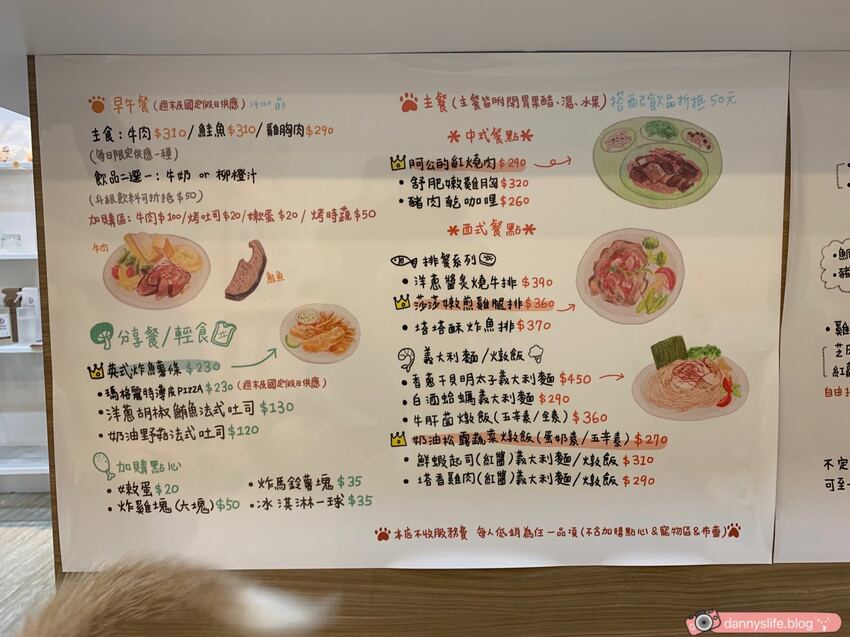 早午餐 (週末及國定假日供應) 14:00前
主食：牛肉$310/鮭魚$310/雞胸肉$290
(每日限定供應一種)
飲品二選一：牛奶 or 柳橙汁
(升級飲料可折抵$50)
加購區：牛肉$100/烤吐司$20/嫩蛋$20/烤時蔬$50
牛肉
鮭魚
分享餐/輕食
英式炸魚薯條 $230
•瑪格麗特薄皮PIZZA $230 (週末及國定假日供應)
•洋蔥胡椒鮪魚法式吐司 $130
•奶油野菇法式吐司 $120
加購點心
•嫩蛋 $20
•炸馬鈴薯塊 $35
•炸雞塊(六塊) $50
•冰淇淋一球 $35
主餐 (主餐皆附開胃果醋、湯、水果) 搭配飲品折抵50元
中式餐點
阿公的紅燒肉 $290
•舒肥嫩雞胸 $320
•豬肉乾咖哩 $260
西式餐點
排餐系列
•洋蔥醬炙燒牛排 $390
莎莎嫩煎雞腿排 $360
•塔塔酥炸魚排 $370
義大利麵/燉飯
•香蔥干貝明太子義大利麵 $450
•白酒蛤蠣義大利麵 $290
•牛肝菌燉飯(五辛素/全素) $360
奶油松露蔬菜燉飯(蛋奶素/五辛素) $270
•鮮蝦起司(紅醬)義大利麵/燉飯 $310
•塔香雞肉(紅醬)義大利麵/燉飯 $290
本店不收服務費 每人低銷為任一品項(不含加購點心&寵物區&布蕾)
•鯛
•豬
•雞
芝
紅
自由
不定
可至
dannyslife.blog